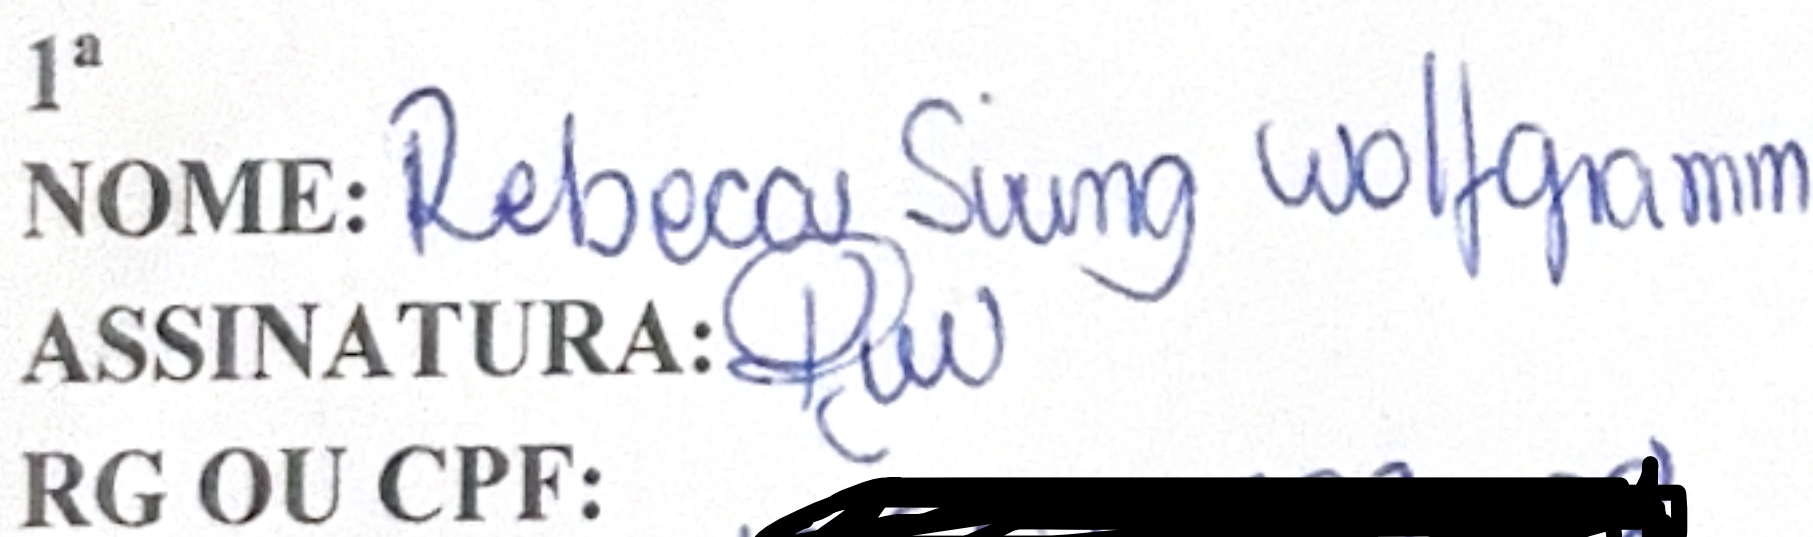 1ª
NOME: Rebeca Wolfgramm
ASSINATURA:
RG OU CPF: